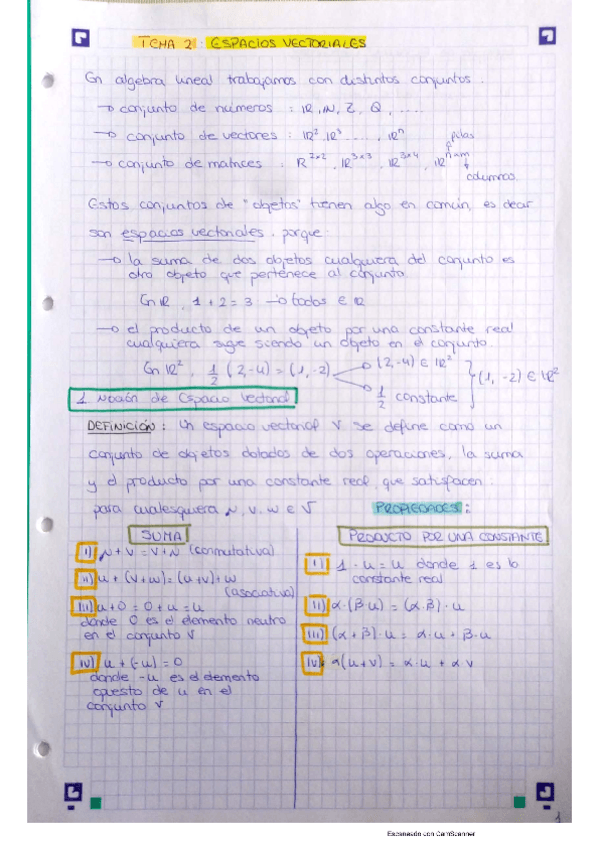 TEMA 2 : ESPACIOS VECTORIALES
En algebra lineal trabajamos con distintos conjuntos.
→ conjunto de números : ℝ, ℕ, ℤ, Q, .....
→ conjunto de vectores : ℝ², ℝ³ ....., ℝⁿ
filas
→ conjunto de matrices : ℝ²ˣ², ℝ³ˣ³, ℝ³ˣ⁴, ℝⁿˣᵐ
columnas
Estos conjuntos de "objetos" tienen algo en común, es decir
son espacios vectoriales, porque:
→ la suma de dos objetos cualquiera del conjunto es
otro objeto que pertenece al conjunto.
En ℝ, 1 + 2 = 3 → todos ∈ ℝ
→ el producto de un objeto por una constante real
cualquiera sigue siendo un objeto en el conjunto.
En ℝ², 1/2 (2,-4) = (1,-2) (2,-4) ∈ ℝ² 1/2 constante } (1, -2) ∈ ℝ²
1. Noción de Espacio Vectorial
DEFINICIÓN : Un espacio vectorial V se define como un
conjunto de objetos dotados de dos operaciones, la suma
y el producto por una constante real, que satisfacen:
para cualesquiera u, v, w ∈ V PROPIEDADES :
SUMA
i) u + v = v + u (conmutativa)
ii) u + (v+w) = (u+v) + w
(asociativa)
iii) u + 0 = 0 + u = u
donde 0 es el elemento neutro
en el conjunto V
iv) u + (-u) = 0
donde -u es el elemento
opuesto de u en el
conjunto V
PRODUCTO POR UNA CONSTANTE
i) 1 · u = u donde 1 es la
constante real
ii) α·(β·u) = (α·β)·u
iii) (α + β)·u = α·u + β·u
iv) α(u+v) = α·u + α v
1
Escaneado con CamScanner